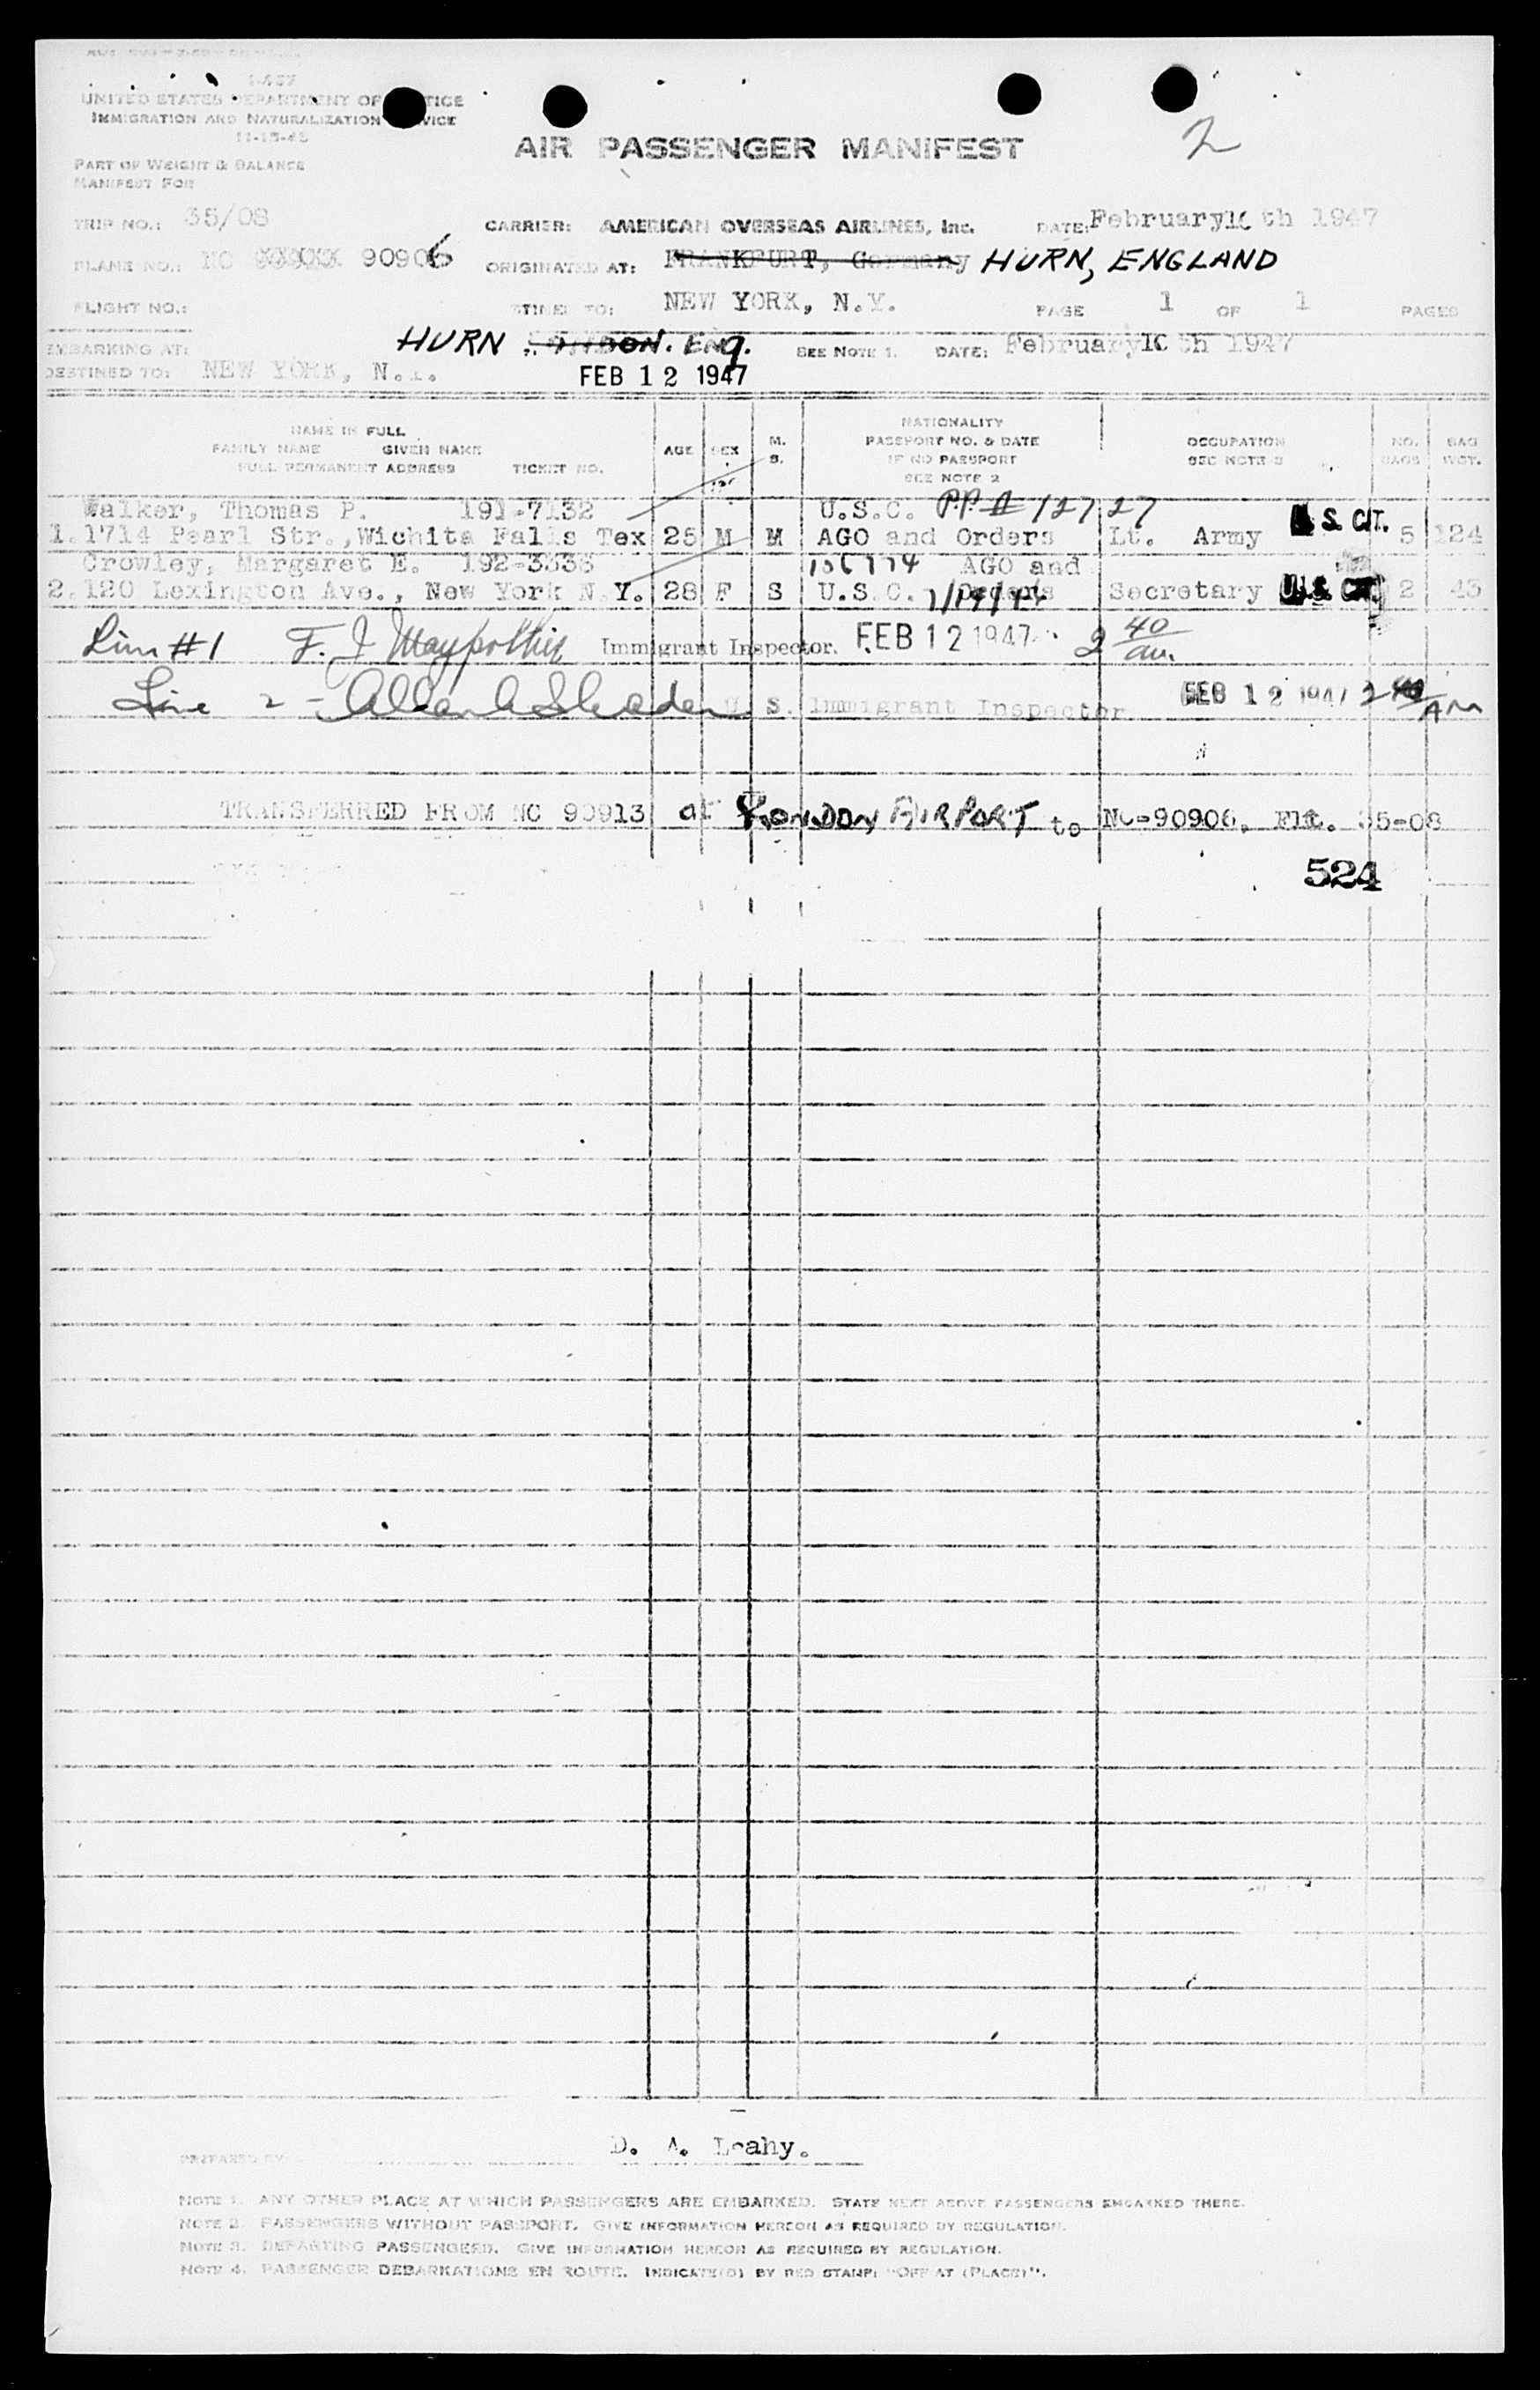 I-457
UNITED STATES DEPARTMENT OF JUSTICE
IMMIGRATION AND NATURALIZATION SERVICE
11-15-45
AIR PASSENGER MANIFEST
2
PART OF WEIGHT & BALANCE
MANIFEST FOR
TRIP NO.: 35/08
CARRIER: AMERICAN OVERSEAS AIRLINES, Inc. DATE: February 10th 1947
PLANE NO.: NC 90906 ORIGINATED AT: FRANKFURT, Germany HURN, ENGLAND
FLIGHT NO.: DESTINED TO: NEW YORK, N.Y. PAGE 1 OF 1 PAGES
EMBARKING AT: HURN LONDON. ENG. SEE NOTE 1. DATE: February 10 th 1947
DESTINED TO: NEW YORK, N.Y. FEB 12 1947
NAME IN FULL
FAMILY NAME GIVEN NAME
FULL PERMANENT ADDRESS TICKET NO.
AGE
SEX
M.
S.
NATIONALITY
PASSPORT NO. & DATE
IF NO PASSPORT
SEE NOTE 2
OCCUPATION
SEE NOTE 3
NO.
BAGS
BAG
WGT.
Walker, Thomas P. 191-7132 U.S.C. PP# 12727
1. 1714 Pearl Str., Wichita Falls Tex 25 M M AGO and Orders Lt. Army U.S. CIT. 5 124
Crowley, Margaret E. 192-3336 AGO and
2. 120 Lexington Ave., New York N.Y. 28 F S U.S.C. Orders Secretary U.S. CIT. 2 43
Line #1 F. J. Immigrant Inspector. FEB 12 1947 2 40 am.
Line 2 - U. S. Immigrant Inspector FEB 12 1947 2 40 AM
TRANSFERRED FROM NC 90913 at LONDON AIRPORT to NC-90906, Flt. 35-08
524
PREPARED BY D. A. Leahy.
NOTE 1. ANY OTHER PLACE AT WHICH PASSENGERS ARE EMBARKED. STATE NEXT ABOVE PASSENGERS EMBARKED THERE.
NOTE 2. PASSENGERS WITHOUT PASSPORT. GIVE INFORMATION HEREON AS REQUIRED BY REGULATION.
NOTE 3. DEPARTING PASSENGERS. GIVE INFORMATION HEREON AS REQUIRED BY REGULATION.
NOTE 4. PASSENGER DEBARKATIONS EN ROUTE. INDICATE(D) BY RED STAMP: "OFF AT (PLACE)".